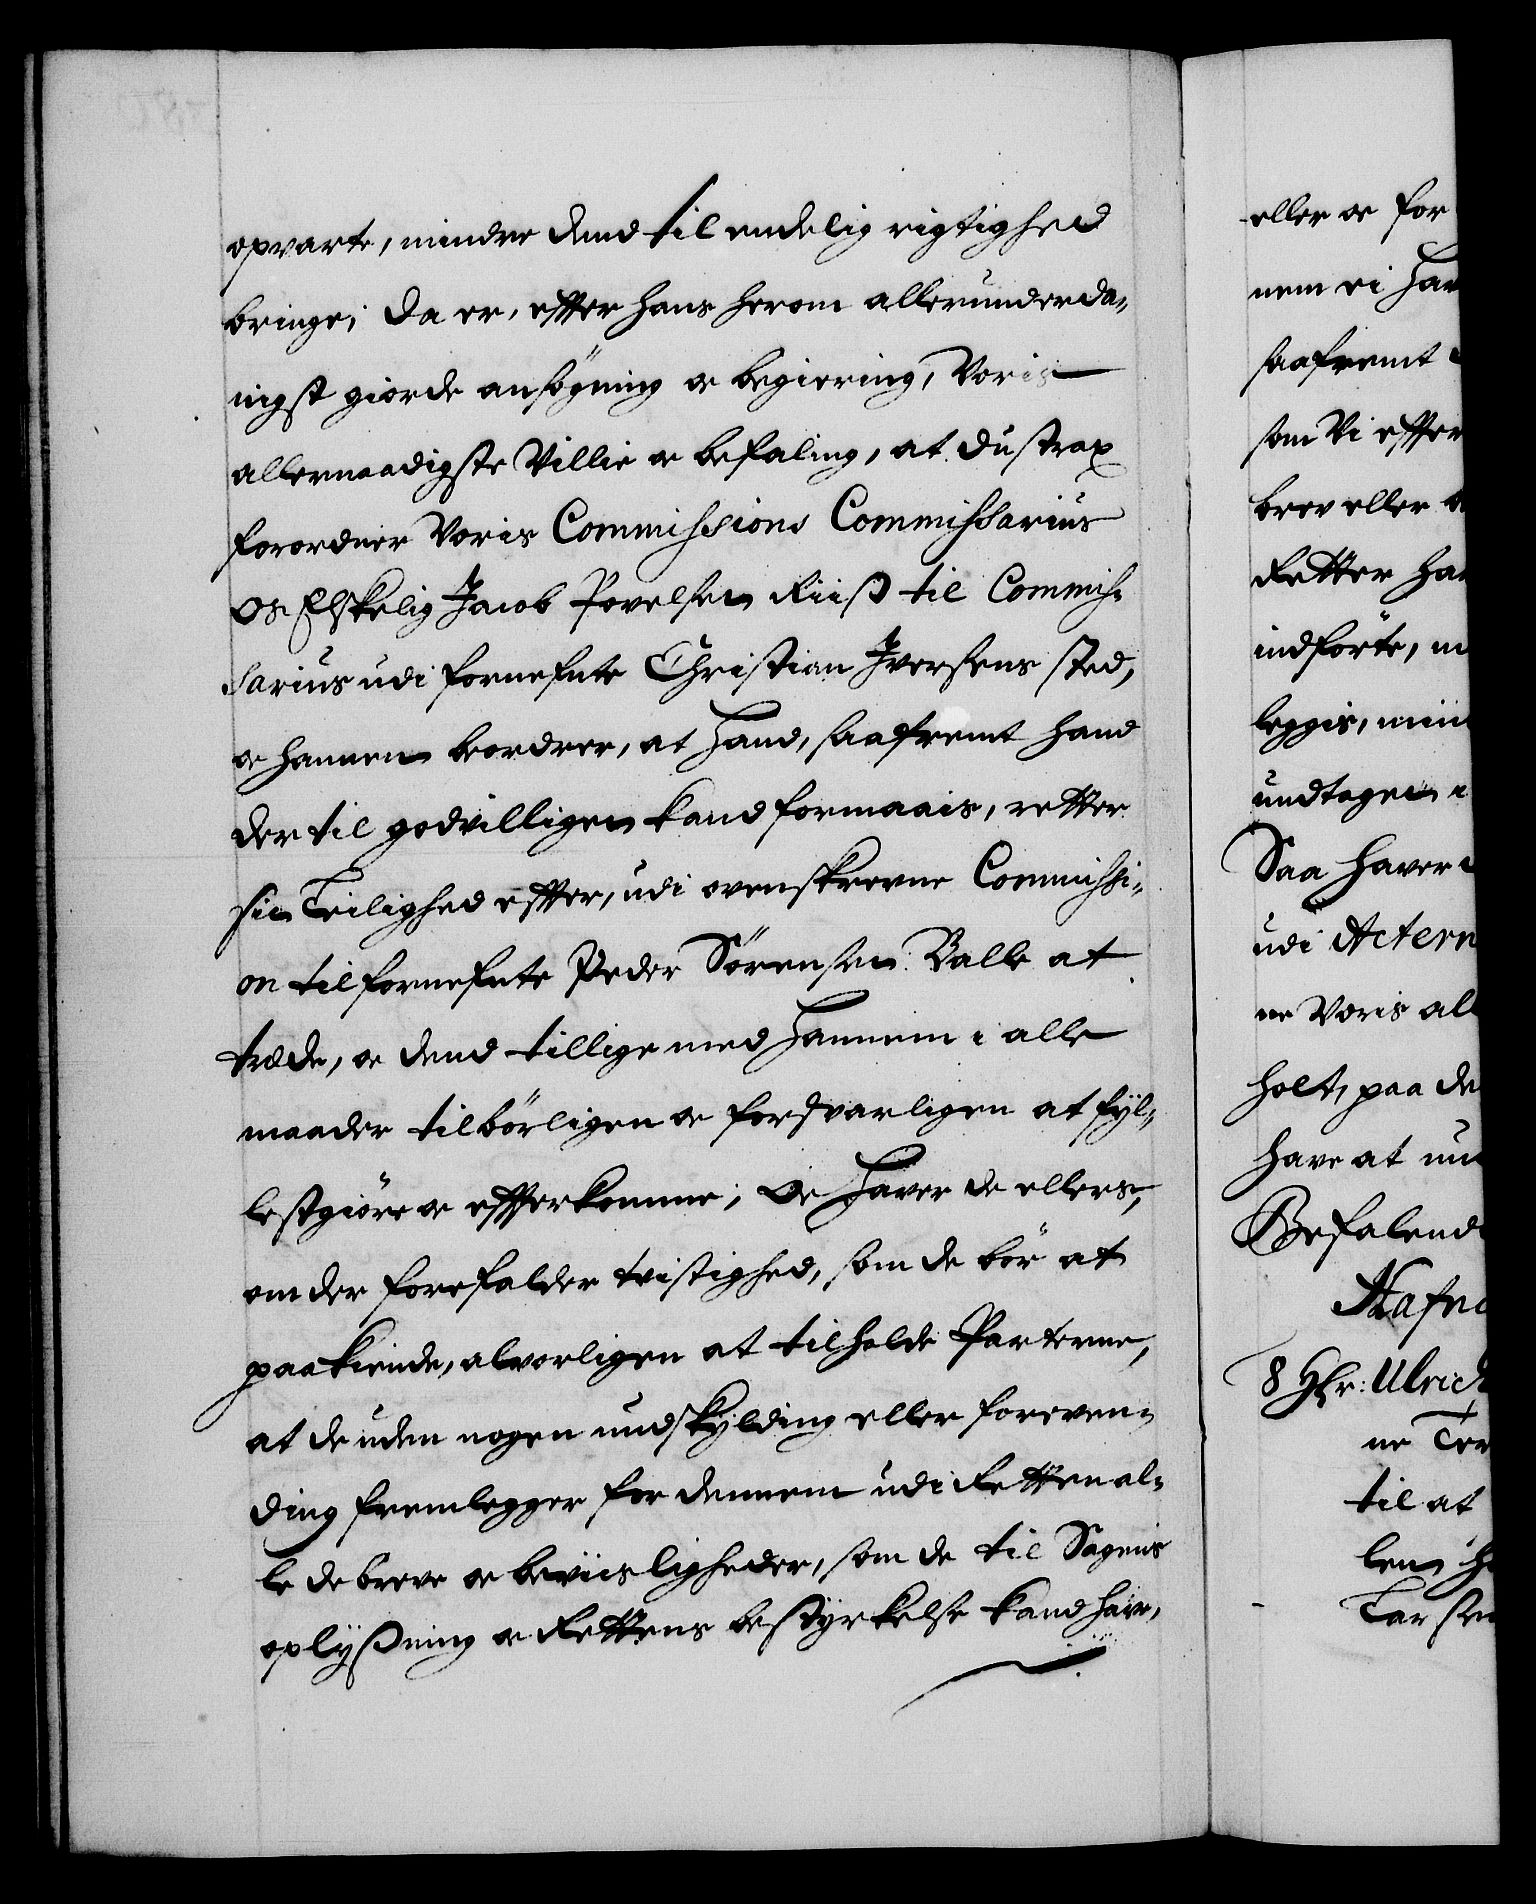 opvarte, mindre dend til endelig rigtighed
bringe; Da er, effter hans herom allerunderda-
nigst giorde ansøgning oc begiering, Voris
allernaadigste Villie oc befaling, at du strax
forordner Voris Commissions Commissarius
Os Elskelig Jacob Povelsen Riisz til Commis-
sarius udi fornefnte Christian Iversens sted,
oc hannem beordrer, at Hand, saafremt hand
der til godvilligen kand formaais, retter
sin Leilighed effter, udi ovenskrevne Commissi-
on til fornefnte Peder Sørensen Balle at
træde, oc dend tillige med Hannem i alle
maader tilbørligen oc forsvarligen at fyl-
lestgiøre oc effterkomme; Oc Haver de ellers,
om der forefalder tvistighed, som de bør at
paakiende, alvorligen at tilholde Parterne,
at de uden nogen undskylding eller foreven-
ding fremlegger for dennem udi Retten al-
le de breve oc beviisligheder, som de til Sagens
oplysning oc Rettens bestyrkelse kand have,
eller oc for
nem ei Hav
saafremt
som Vi effter
brev eller
Retter ha
indførte, m
leggis, min
undtagen
Saa Haver
udi Actern
ne Voris all
holt, paa de
have at
Befalend
Hafni
8 Hr: Ulrich
ne Ter
til at
len h
Larsen